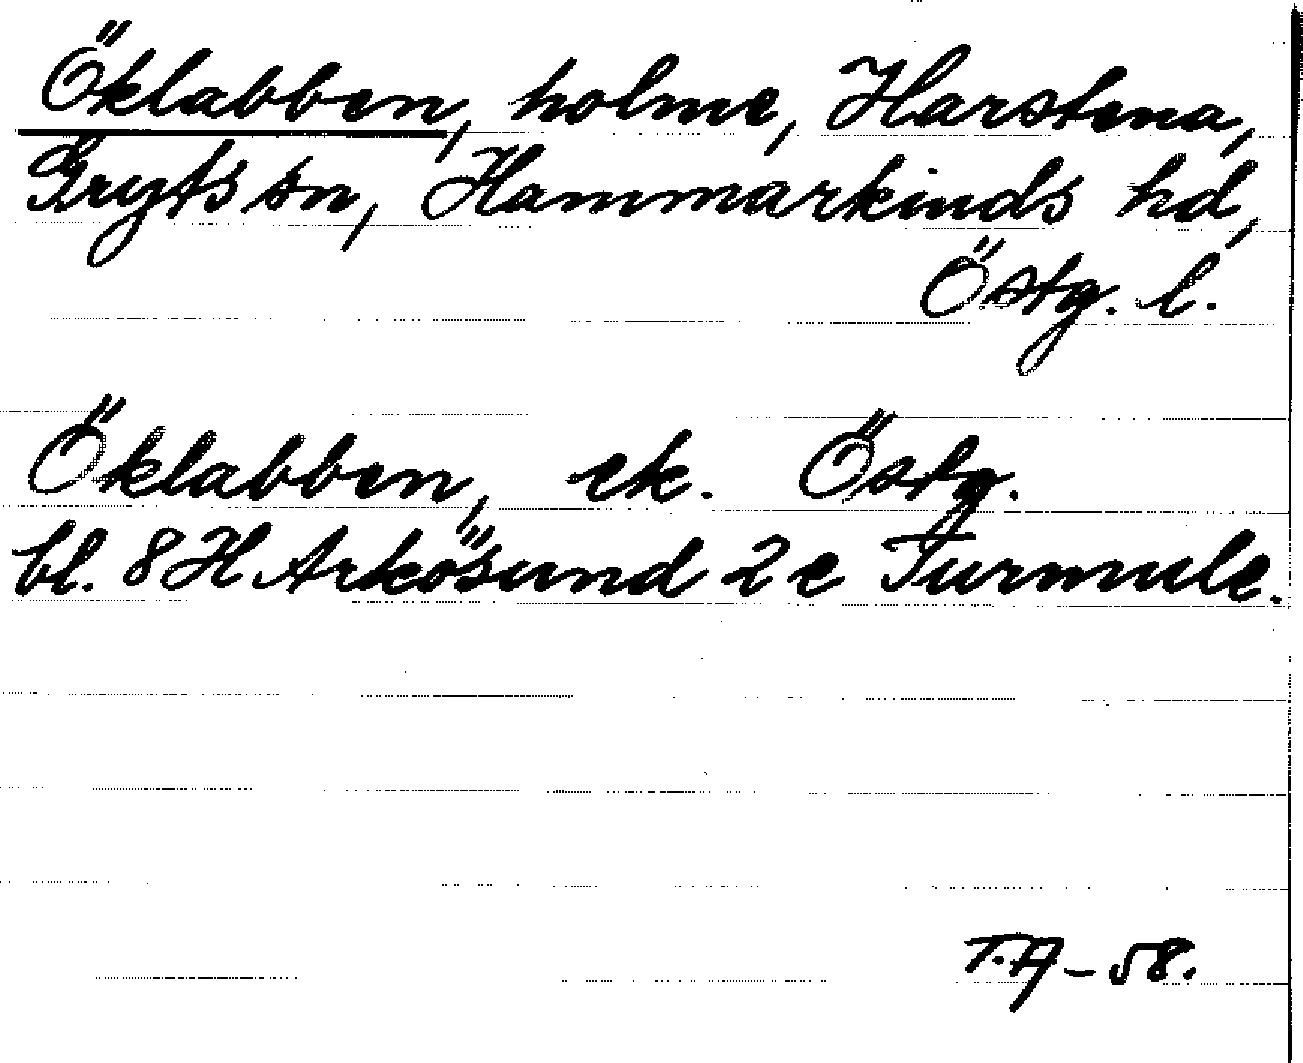 Öklabben, holme, Harstena,
Gryts sn, Hammarkinds hd,
Östg. l.
Öklabben, ek. Östg.
bl. 8H Arkösund 2e Turmule.
T.A-58.